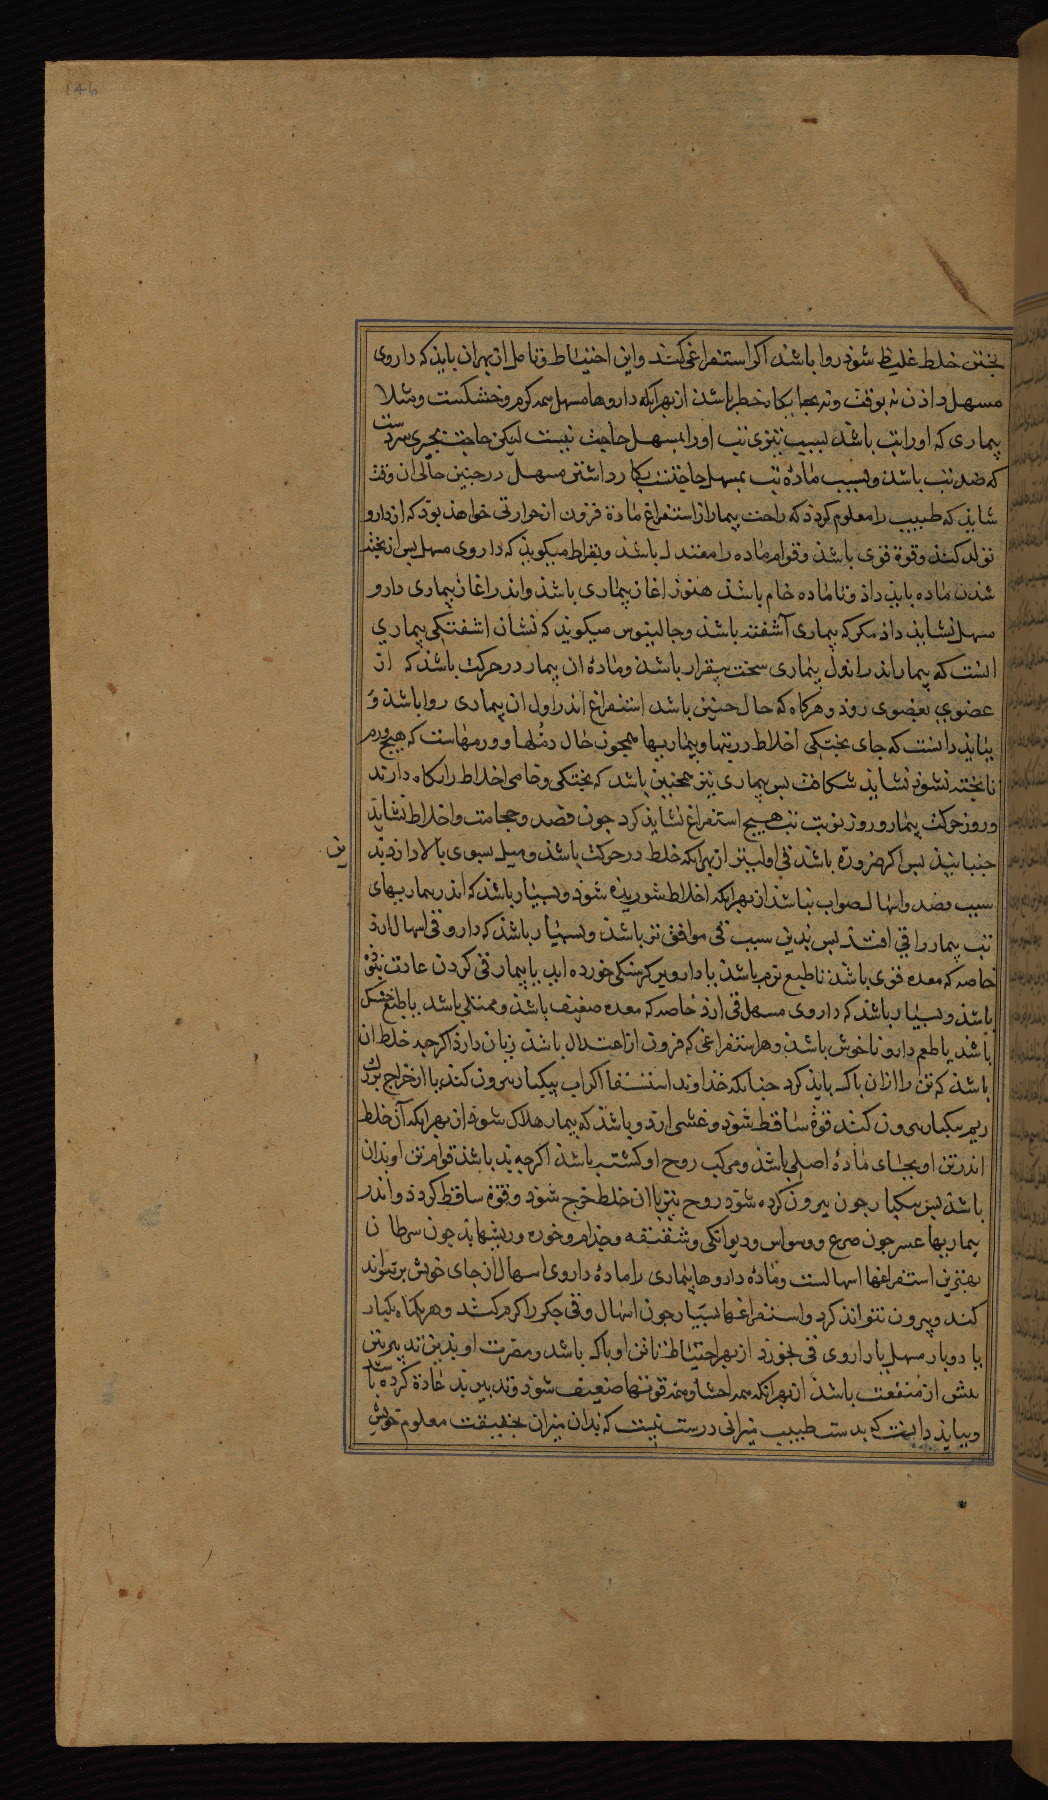 146
بختن خلط غلیظ شوذ روا باشذ اکر استفراغی کنند و این احتیاط و تامل از بهر ان بایذ که داروی
مسهل داذن نه بوقت و نه بجایکاه خطر باشذ از بهر انکه داروها مسهل همه کرم و خشکست و مثلا
بیماری که او را تب باشذ بسبب تیزی تب او را بمسهل حاجت نیست لیکن حاجت بچیزی سردست
که ضد تب باشذ و بسبب ماذه تب بمسهل حاجتست بکار داشتن مسهل در جنین حالی ان وقت
شایذ که طبیب را معلوم کردذ که راحت بیمار از استفراغ ماذة فزون از حرارتی خواهذ بوذ که از دارو
تولد کنذ و قوة قوی باشذ و قوام ماذه را معتدل باشذ و بقراط میکویذ که داروی مسهل بس از بخته
شذن ماذه بایذ داذ و تا ماذه خام باشذ هنوز اغاز بیماری باشذ و اندر اغاز بیماری دارو
مسهل نشایذ داذ مکر که بیماری آشفته باشذ و جالینوس میکویذ که نشان اشفتکی بیماری
انست که بیمار اندر اول بیماری سخت بیقرار باشذ و ماذه ان بیمار در حرکت باشذ که از
عضوی بعضوی روذ و هرکاه که حال جنین باشذ استفراغ اندر اول ان بیماری روا باشذ و
ببایذ دانست که جای بختکی اخلاط در تنها و بیماریها همجون حال دملها و ورمهاست که هیج ورم
نابخته نشوذ نشایذ شکافت بس بیماری نیز همجنین باشذ که بختکی و خامی اخلاط را نکاه دارند
و روز حرکت بیمار و روز نوبت تب هیج استفراغ نشایذ کرد جون فصد و حجامت و اخلاط نشایذ
جنبانیذ بس اکر ضرورة باشذ قی اولیتر از بهر انکه خلط در حرکت باشذ و میل بسوی بالا دارذ بذین
سبب فصد و اسهال صواب نباشذ از بهر انکه اخلاط شوریذه شوذ و بسیار باشذ که اندر بیماریهای
تب بیمار را قی افتذ بس بذین سبب قی موافق تر باشذ و بسیار باشذ که دارو قی اسهال ارذ
خاصه که معده قوی باشذ تا طبع نرم باشذ یا دارو بر کرسنکی خورده ایذ یا بیمار قی کردن عادت نبوذه
باشذ و بسیار باشذ که داروی مسهل قی ارذ خاصه که معده ضعیف باشذ و ممتلی باشذ یا طبع خشک
باشذ یا طعم دارو ناخوش باشذ و هر استفراغی که فزون از اعتدال باشذ زیان دارذ اکر جه خلط ان
باشذ که تن را ازان باک بایذ کرد جنانکه خذاوند استسقا اکر اب بیکبار بیرون کنند یا از خراج بزرک
ریم بیکبار بیرون کنند قوة ساقط شوذ و غشی ارذ و باشذ که بیمار هلاک شوذ از بهر انکه آن خلط
اندر تن او بجای ماذه اصلی باشذ و مرکب روح او کشته باشذ اکر جه بذ باشذ قوام تن او بذان
باشذ بس بیکبار جون بیرون کرده شوذ روح نیز با ان خلط خرج شوذ و قوة ساقط کردذ و اندر
بیماریها عسر جون صرع و وسواس و دیوانکی و شقیقه و جذام و خوره و ریشها بذ جون سرطان
بهترین استفراغها اسهالست و ماذه داروها بیماری را ماذه داروی اسهال از جای خویش بر تواند
کند و بیرون تواند کرد و استفراغها بسیار جون اسهال و قی جکر را کرم کنذ و هر بکاه یکبار
یا دو بار مسهل یا داروی قی بخورذ از بهر احتیاط تا تن او باک باشذ و مضرت او بذین تدبیر بیش
بیش از منفعت باشذ از بهر انکه همه احشا و همه قوتها ضعیف شوذ و تدبیر بذ عادة کرده باشذ
و ببایذ دانست که بدست طبیب میزانی درست نیست که بذان میزان بحقیقت معلوم خویش
ین